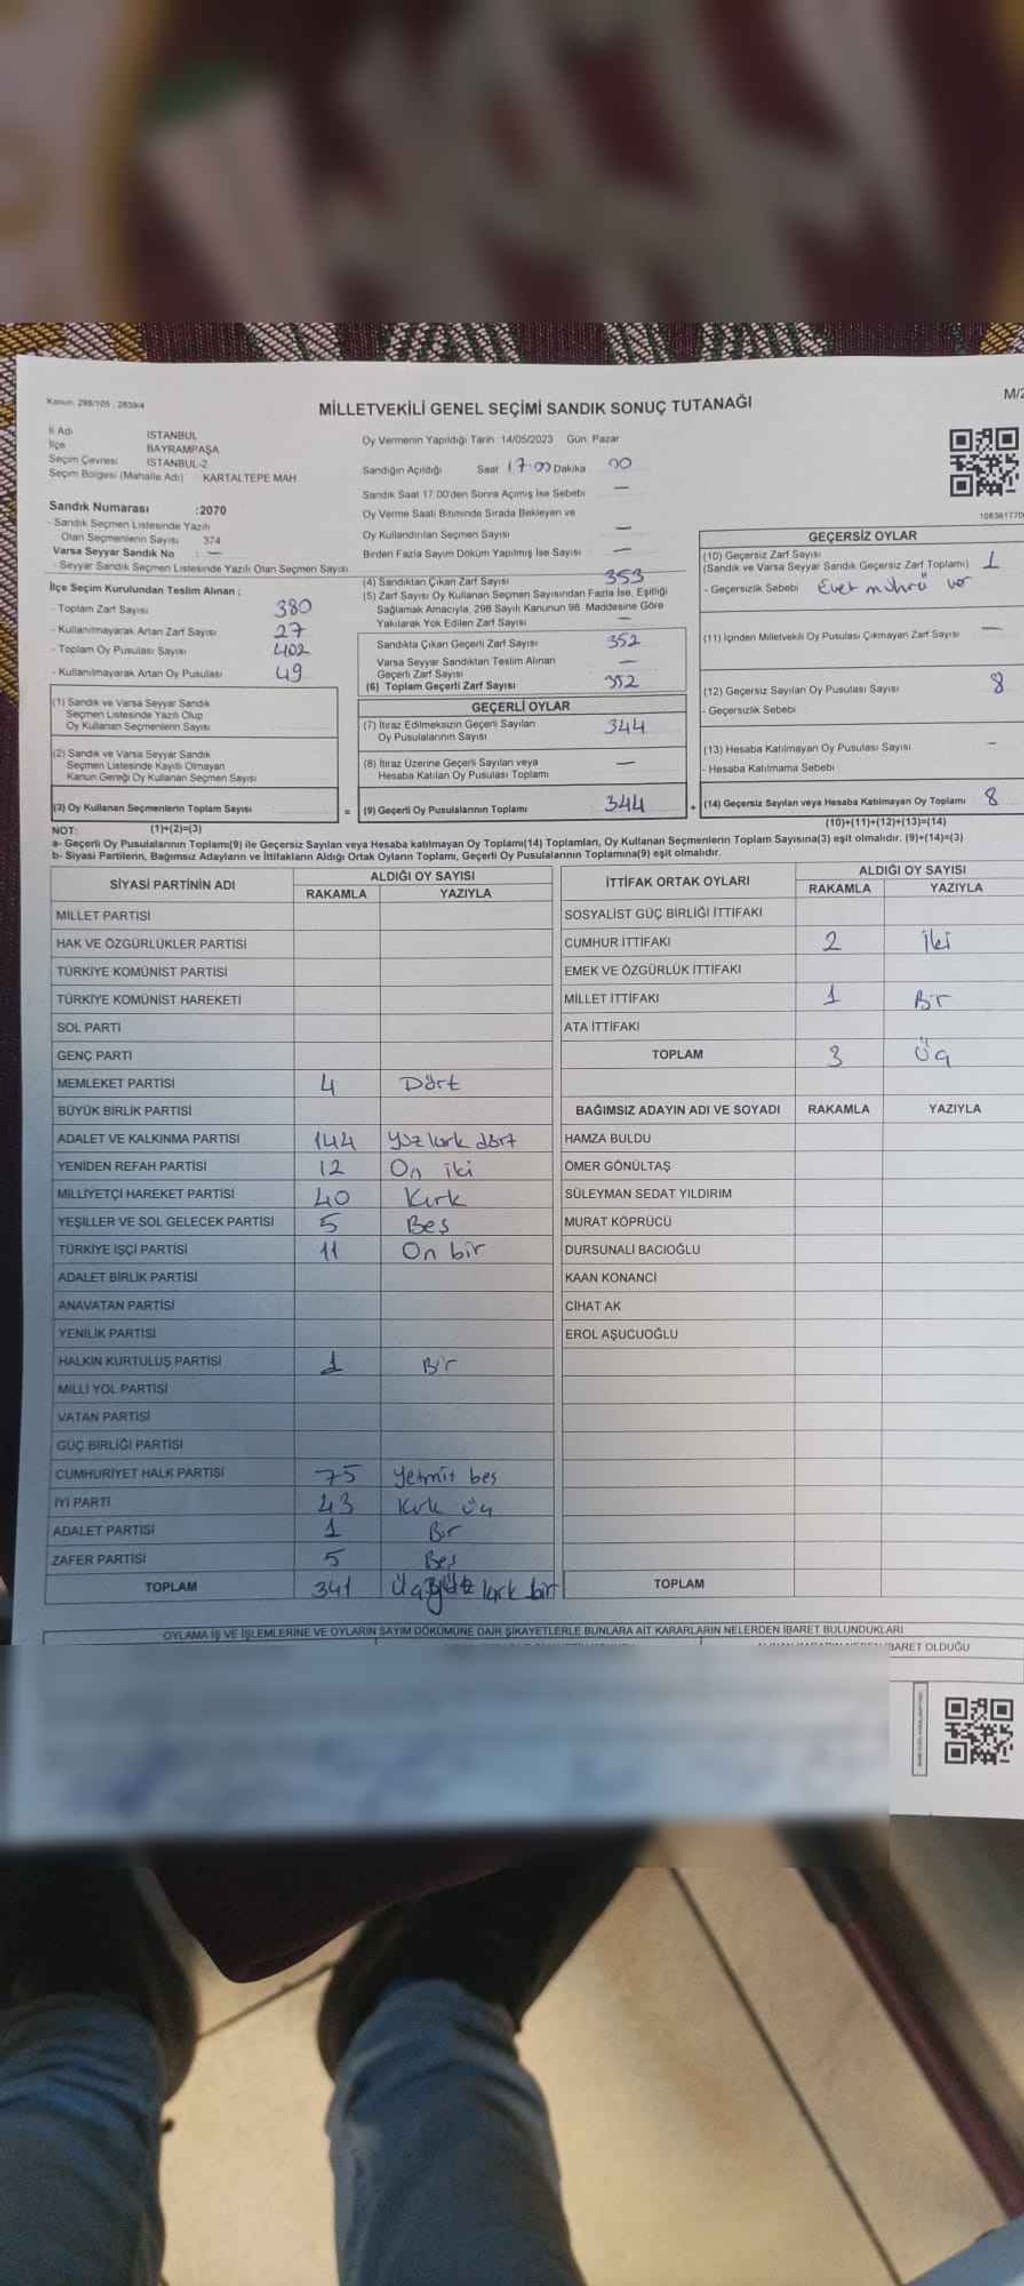 Kanun: 298/105 ; 2839/4
M/2
MİLLETVEKİLİ GENEL SEÇİMİ SANDIK SONUÇ TUTANAĞI
İl Adı İSTANBUL
İlçe BAYRAMPAŞA
Seçim Çevresi İSTANBUL-2
Seçim Bölgesi (Mahalle Adı) KARTALTEPE MAH
Sandık Numarası :2070
- Sandık Seçmen Listesinde Yazılı
Olan Seçmenlerin Sayısı 374
Varsa Seyyar Sandık No : —
- Seyyar Sandık Seçmen Listesinde Yazılı Olan Seçmen Sayısı
İlçe Seçim Kurulundan Teslim Alınan ;
- Toplam Zarf Sayısı 380
- Kullanılmayarak Artan Zarf Sayısı 27
- Toplam Oy Pusulası Sayısı 402
- Kullanılmayarak Artan Oy Pusulası 49
(1) Sandık ve Varsa Seyyar Sandık
Seçmen Listesinde Yazılı Olup
Oy Kullanan Seçmenlerin Sayısı
(2) Sandık ve Varsa Seyyar Sandık
Seçmen Listesinde Kayıtlı Olmayan
Kanun Gereği Oy Kullanan Seçmen Sayısı
(3) Oy Kullanan Seçmenlerin Toplam Sayısı =
Oy Vermenin Yapıldığı Tarih 14/05/2023 Gün Pazar
Sandığın Açıldığı Saat 17:00 Dakika 00
Sandık Saat 17.00'den Sonra Açılmış İse Sebebi —
Oy Verme Saati Bitiminde Sırada Bekleyen ve
Oy Kullandırılan Seçmen Sayısı —
Birden Fazla Sayım Döküm Yapılmış İse Sayısı —
(4) Sandıktan Çıkan Zarf Sayısı 353
(5) Zarf Sayısı Oy Kullanan Seçmen Sayısından Fazla İse, Eşitliği
Sağlamak Amacıyla, 298 Sayılı Kanunun 98. Maddesine Göre
Yakılarak Yok Edilen Zarf Sayısı —
Sandıkta Çıkan Geçerli Zarf Sayısı 352
Varsa Seyyar Sandıktan Teslim Alınan
Geçerli Zarf Sayısı —
(6) Toplam Geçerli Zarf Sayısı 352
GEÇERLİ OYLAR
(7) İtiraz Edilmeksizin Geçerli Sayılan
Oy Pusulalarının Sayısı 344
(8) İtiraz Üzerine Geçerli Sayılan veya
Hesaba Katılan Oy Pusulası Toplamı —
(9) Geçerli Oy Pusulalarının Toplamı 344 +
GEÇERSİZ OYLAR
(10) Geçersiz Zarf Sayısı
(Sandık ve Varsa Seyyar Sandık Geçersiz Zarf Toplamı) 1
- Geçersizlik Sebebi Evet mührü var
(11) İçinden Milletvekili Oy Pusulası Çıkmayan Zarf Sayısı —
(12) Geçersiz Sayılan Oy Pusulası Sayısı 8
- Geçersizlik Sebebi
(13) Hesaba Katılmayan Oy Pusulası Sayısı –
- Hesaba Katılmama Sebebi
(14) Geçersiz Sayılan veya Hesaba Katılmayan Oy Toplamı 8
(10)+(11)+(12)+(13)=(14)
NOT: (1)+(2)=(3)
a- Geçerli Oy Pusulalarının Toplamı(9) ile Geçersiz Sayılan veya Hesaba katılmayan Oy Toplamı(14) Toplamları, Oy Kullanan Seçmenlerin Toplam Sayısına(3) eşit olmalıdır. (9)+(14)=(3)
b- Siyasi Partilerin, Bağımsız Adayların ve İttifakların Aldığı Ortak Oyların Toplamı, Geçerli Oy Pusulalarının Toplamına(9) eşit olmalıdır.
SİYASİ PARTİNİN ADI ALDIĞI OY SAYISI
RAKAMLA YAZIYLA
MİLLET PARTİSİ
HAK VE ÖZGÜRLÜKLER PARTİSİ
TÜRKİYE KOMÜNİST PARTİSİ
TÜRKİYE KOMÜNİST HAREKETİ
SOL PARTİ
GENÇ PARTİ
MEMLEKET PARTİSİ 4 Dört
BÜYÜK BİRLİK PARTİSİ
ADALET VE KALKINMA PARTİSİ 144 Yüz kırk dört
YENİDEN REFAH PARTİSİ 12 On iki
MİLLİYETÇİ HAREKET PARTİSİ 40 Kırk
YEŞİLLER VE SOL GELECEK PARTİSİ 5 Beş
TÜRKİYE İŞÇİ PARTİSİ 11 On bir
ADALET BİRLİK PARTİSİ
ANAVATAN PARTİSİ
YENİLİK PARTİSİ
HALKIN KURTULUŞ PARTİSİ 1 Bir
MİLLİ YOL PARTİSİ
VATAN PARTİSİ
GÜÇ BİRLİĞİ PARTİSİ
CUMHURİYET HALK PARTİSİ 75 Yetmiş beş
İYİ PARTİ 43 Kırk üç
ADALET PARTİSİ 1 Bir
ZAFER PARTİSİ 5 Beş
TOPLAM 341 Üçyüz kırk bir
İTTİFAK ORTAK OYLARI ALDIĞI OY SAYISI
RAKAMLA YAZIYLA
SOSYALİST GÜÇ BİRLİĞİ İTTİFAKI
CUMHUR İTTİFAKI 2 İki
EMEK VE ÖZGÜRLÜK İTTİFAKI
MİLLET İTTİFAKI 1 Bir
ATA İTTİFAKI
TOPLAM 3 Üç
BAĞIMSIZ ADAYIN ADI VE SOYADI RAKAMLA YAZIYLA
HAMZA BULDU
ÖMER GÖNÜLTAŞ
SÜLEYMAN SEDAT YILDIRIM
MURAT KÖPRÜCÜ
DURSUNALİ BACIOĞLU
KAAN KONANCI
CİHAT AK
EROL AŞUCUOĞLU
TOPLAM
OYLAMA İŞ VE İŞLEMLERİNE VE OYLARIN SAYIM DÖKÜMÜNE DAİR ŞİKAYETLERLE BUNLARA AİT KARARLARIN NELERDEN İBARET BULUNDUKLARI
İBARET OLDUĞU